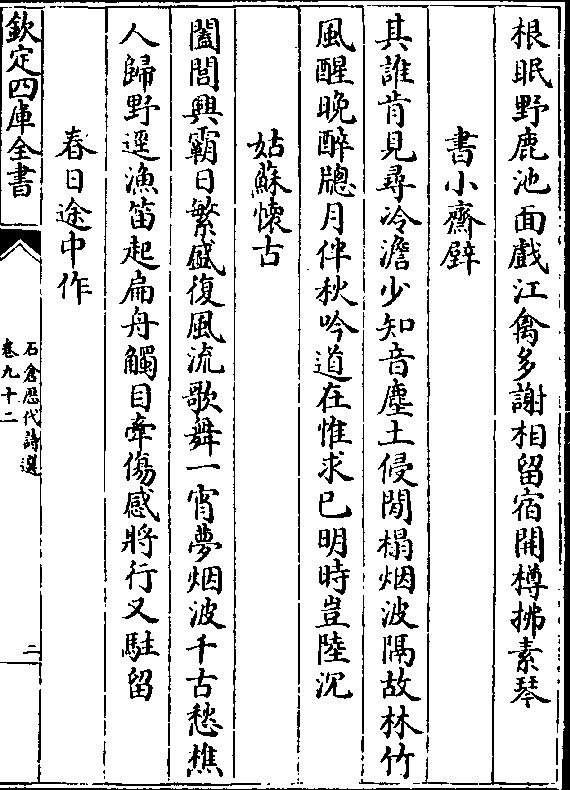 根眠野鹿池面戲江禽多謝相留宿開樽拂素琴
書小齋壁
其誰肯見尋冷澹少知音塵土侵閒榻烟波隔故林竹
風醒晚醉牕月伴秋吟道在惟求已明時豈陸沉
姑蘇懷古
闔閭興霸日繁盛復風流歌舞一宵夢烟波千古愁樵
人歸野逕漁笛起扁舟觸目牽傷感將行又駐留
春日途中作
欽定四庫全書
石倉歷代詩選
卷九十二
二